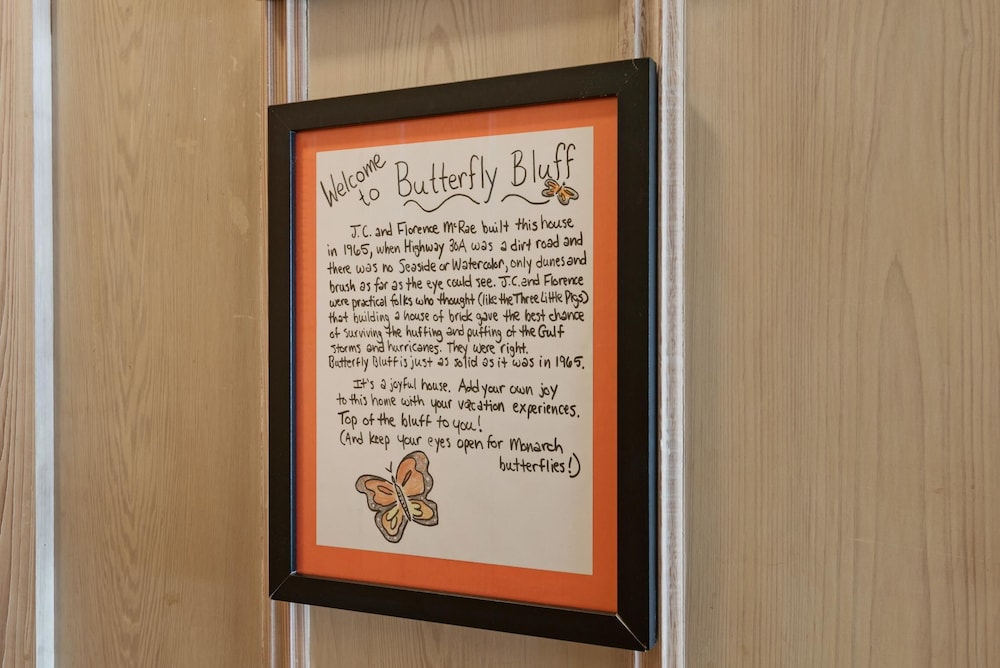 Welcome to Butterfly Bluff
J.C. and Florence McRae built this house
in 1965, when Highway 30A was a dirt road and
there was no Seaside or Watercolor, only dunes and
brush as far as the eye could see. J.C. and Florence
were practical folks who thought (like the Three Little Pigs)
that building a house of brick gave the best chance
of surviving the huffing and puffing of the Gulf
storms and hurricanes. They were right.
Butterfly Bluff is just as solid as it was in 1965.
It's a joyful house. Add your own joy
to this home with your vacation experiences.
Top of the bluff to you!
(And keep your eyes open for Monarch
butterflies!)